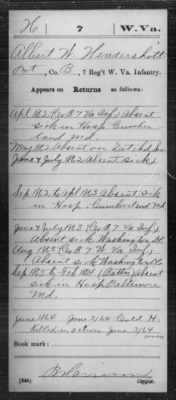 H 7 W. Va.
Albert W. Hendershott
Pvt, Co. B, 7 Reg't W. Va. Infantry.
Appears on Returns as follows:
Apl 1862 (Co B 7 Va Inf) Absent
sick in Hosp Cumber
land Md.
May 1862 Absent on Detchd
June & July 1862 Absent sick
Sep 1862 to Apl 1863 Absent sick
in Hosp. Cumberland Md
June & July 1863 (Co B 7 Va Inf)
Absent sick Washington
Aug 1863 (Co B 7 W. Va Inf)
Absent sick Washington
Sep 1863 to Feb 1864 Absent
sick in Hosp Baltimore
Md.
June 1864
Killed in action June
Book mark:
(546) Copyist.